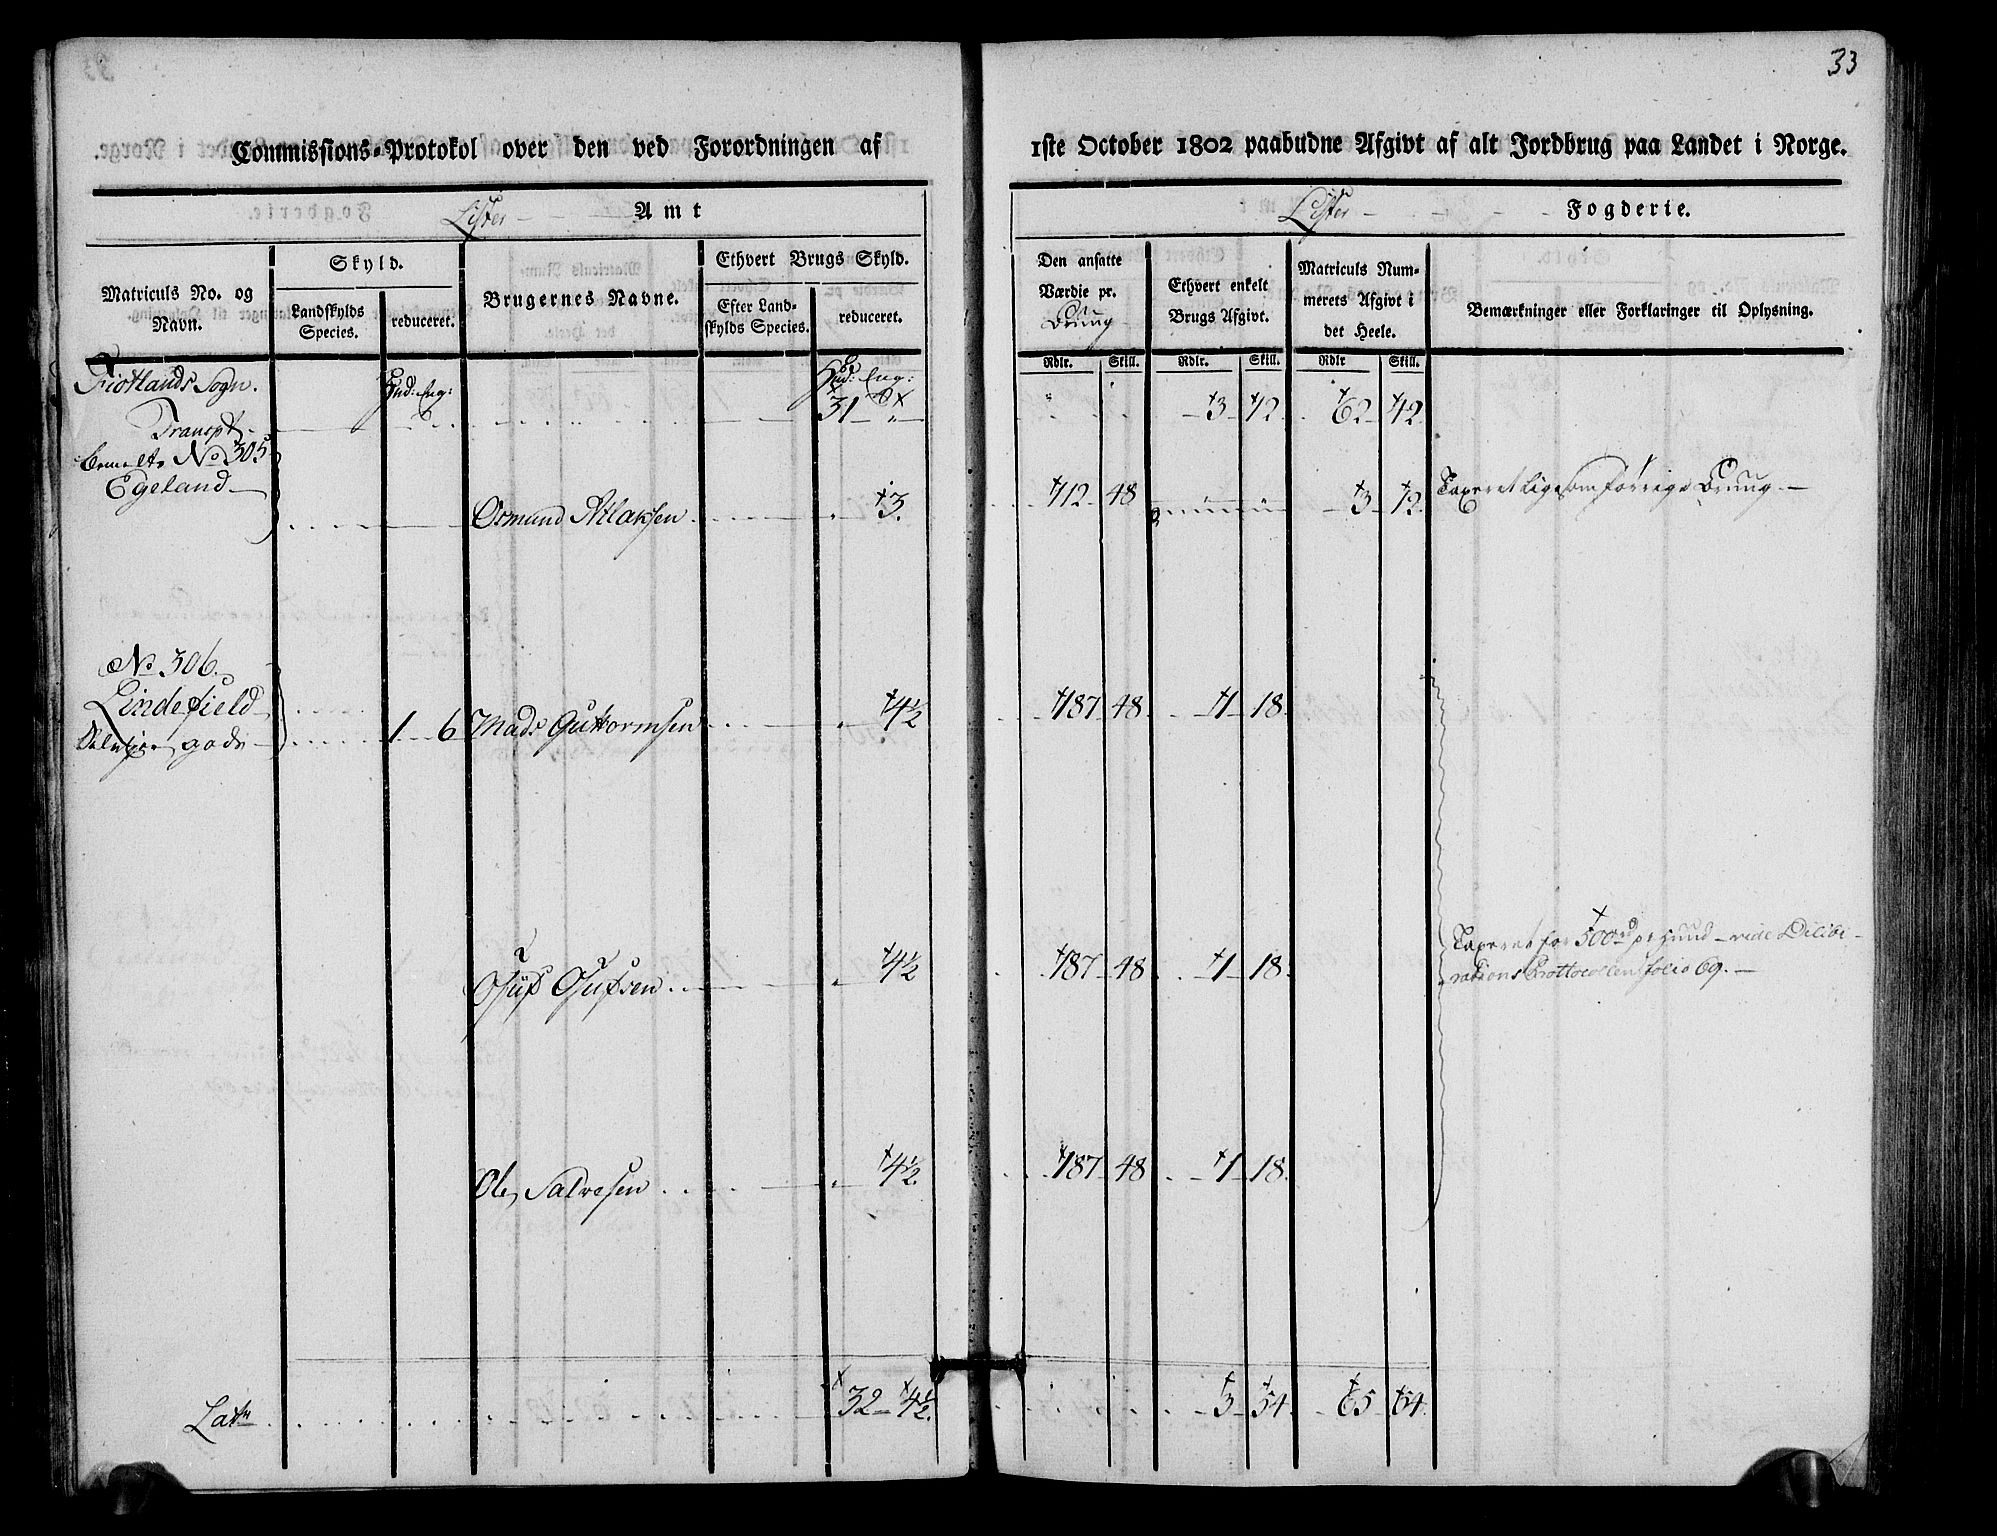 33
Commissions-Protokol over den ved Forordningen af 1ste October 1802 paabudne Afgivt af alt Jordbrug paa Landet i Norge.
Lister Amt
Lister Fogderie.
Matriculs No. og Navn.
Skyld.
Landskylds Species.
reduceret.
Brugernes Navne.
Ethvert Brugs Skyld.
Efter Landskylds Species.
reduceret.
Den ansatte Værdie pr. Brug
Ethvert enkelt Brugs Afgivt.
Matriculs Nummerets Afgivt i det Heele.
Bemærkninger eller Forklaringer til Oplysning.
Rdlr. Skill. Rdlr. Skill. Rdlr Skill.
Fiotlands Sogn. Hud: Eng: Hud: Eng:
Transpt 31 " 3 12 62 42
No 305
Egeland
Osmund Atlaksen 3. 112 48 3 12 Taxeret ligesom forrige Brug
No 306.
Lindefield
gods 1 6 Mads Guttormsen 4½ 187 48 1 18
Osuf Osufsen 4½ 187 48 1 18 Taxeret for 500 rd pr hund vide Delibe-
rations Prottocollens folio 69.
Ole Salvesen 4½ 187 48 1 18
Lat 32 4½ 3 54 65 54